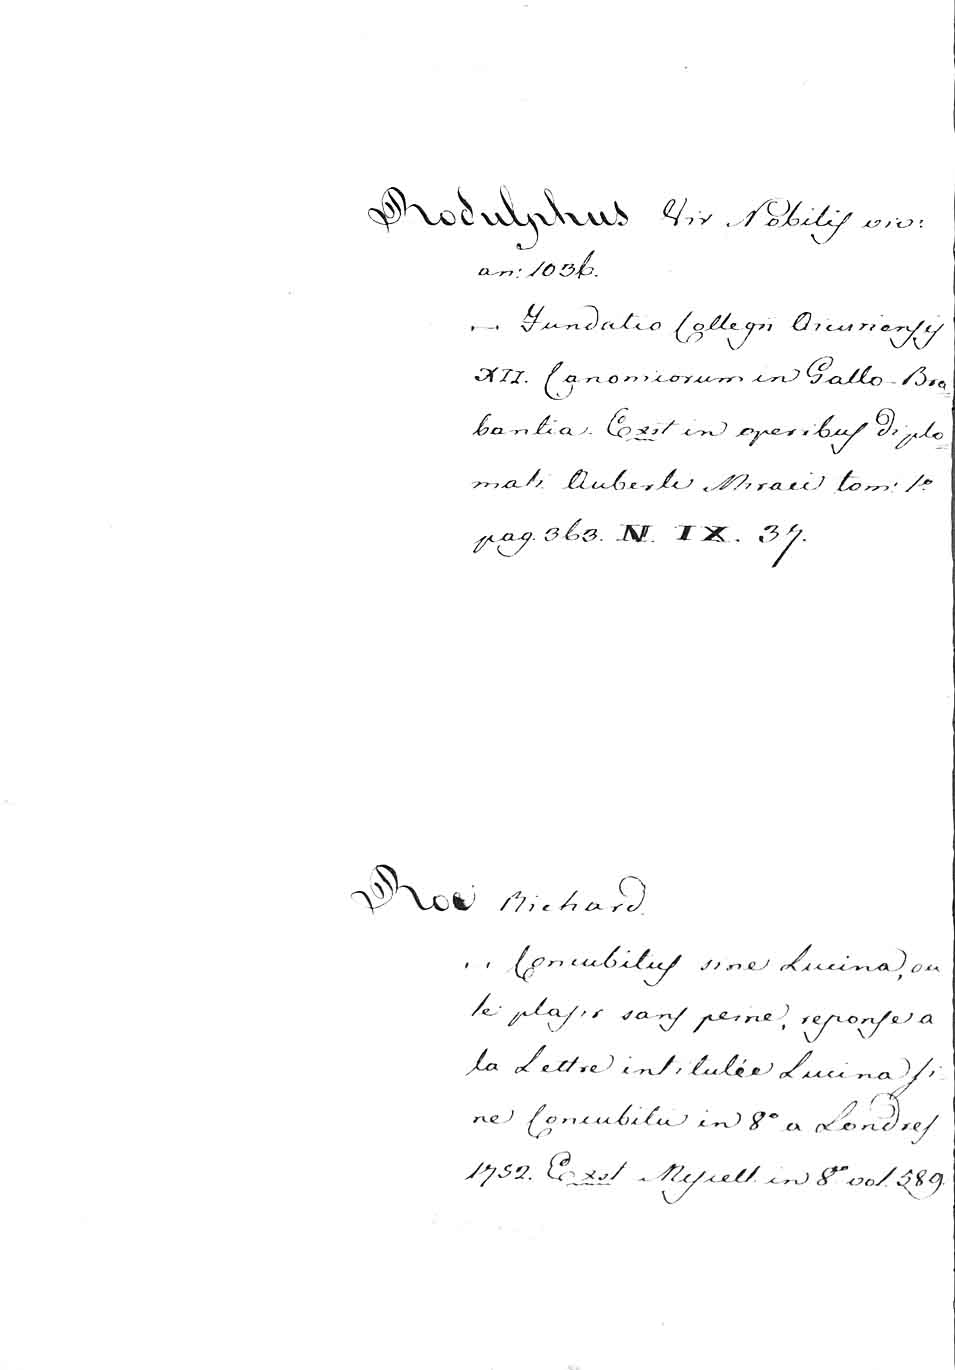 Rodulphus Vir Nobilis viv:
an: 1036.
... Fundatio Collegii Oicuriensis
XII. Canonicorum in Gallo-Bra_
bantia. Exst in operibus Diplo_
mati. Auberti Miraei tom: 1.°
pag. 363. N. IX. 37.
Roe Richard.
... Concubitus sine Lucina, ou
le plasir sans peine, reponse a
la Lettre intitulée Lucina si-
ne Concubitu in 8.° a Londres
1752. Exst Miscell. in 8.° vol. 589.